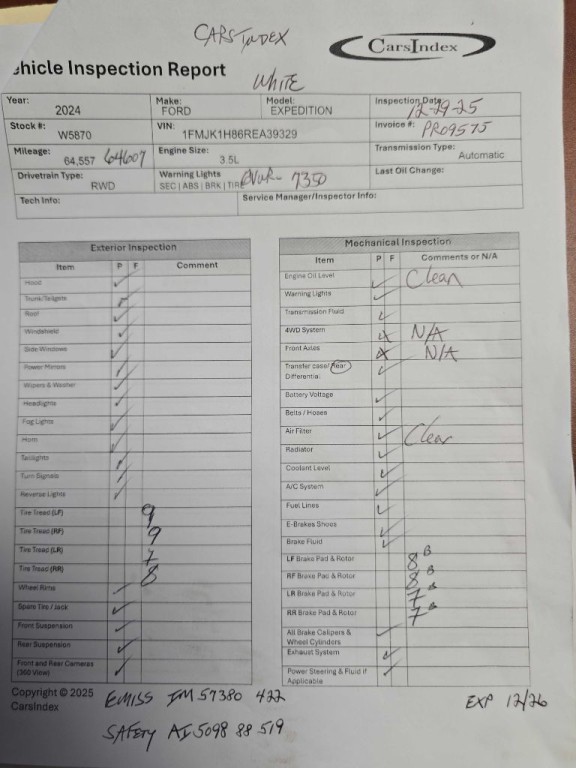 CARS INDEX
CarsIndex
ehicle Inspection Report
WHITE
Year: 2024 Make: FORD Model: EXPEDITION Inspection Date 12-29-25
Stock #: W5870 VIN: 1FMJK1H86REA39329 Invoice #: PRO9575
Mileage: 64,557 64607 Engine Size: 3.5L Transmission Type: Automatic
Drivetrain Type: RWD Warning Lights SEC | ABS | BRK | TIRE 7350 Last Oil Change:
Tech Info: Service Manager/Inspector Info:
Exterior Inspection
Item P F Comment
Hood ✓
Trunk/Tailgate ✓
Roof ✓
Windshield ✓
Side Windows ✓
Power Mirrors ✓
Wipers & Washer ✓
Headlights ✓
Fog Lights ✓
Horn ✓
Taillights ✓
Turn Signals ✓
Reverse Lights ✓
Tire Tread (LF) 9
Tire Tread (RF) 9
Tire Tread (LR) 7
Tire Tread (RR) 8
Wheel Rims ✓
Spare Tire / Jack ✓
Front Suspension ✓
Rear Suspension ✓
Front and Rear Cameras (360 View) ✓
Mechanical Inspection
Item P F Comments or N/A
Engine Oil Level ✓ Clean
Warning Lights ✓
Transmission Fluid ✓
4WD System x N/A
Front Axles x N/A
Transfer case/ Rear Differential ✓
Battery Voltage ✓
Belts / Hoses ✓
Air Filter ✓ Clean
Radiator ✓
Coolant Level ✓
A/C System ✓
Fuel Lines ✓
E-Brakes Shoes ✓
Brake Fluid ✓
LF Brake Pad & Rotor 8 B
RF Brake Pad & Rotor 8 B
LR Brake Pad & Rotor 7 B
RR Brake Pad & Rotor 7 B
All Brake Calipers & Wheel Cylinders ✓
Exhaust System ✓
Power Steering & Fluid if Applicable ✓
Copyright © 2025
CarsIndex
EMISS IM 57380 422 EXP 12/26
SAFETY AI 5098 88 519